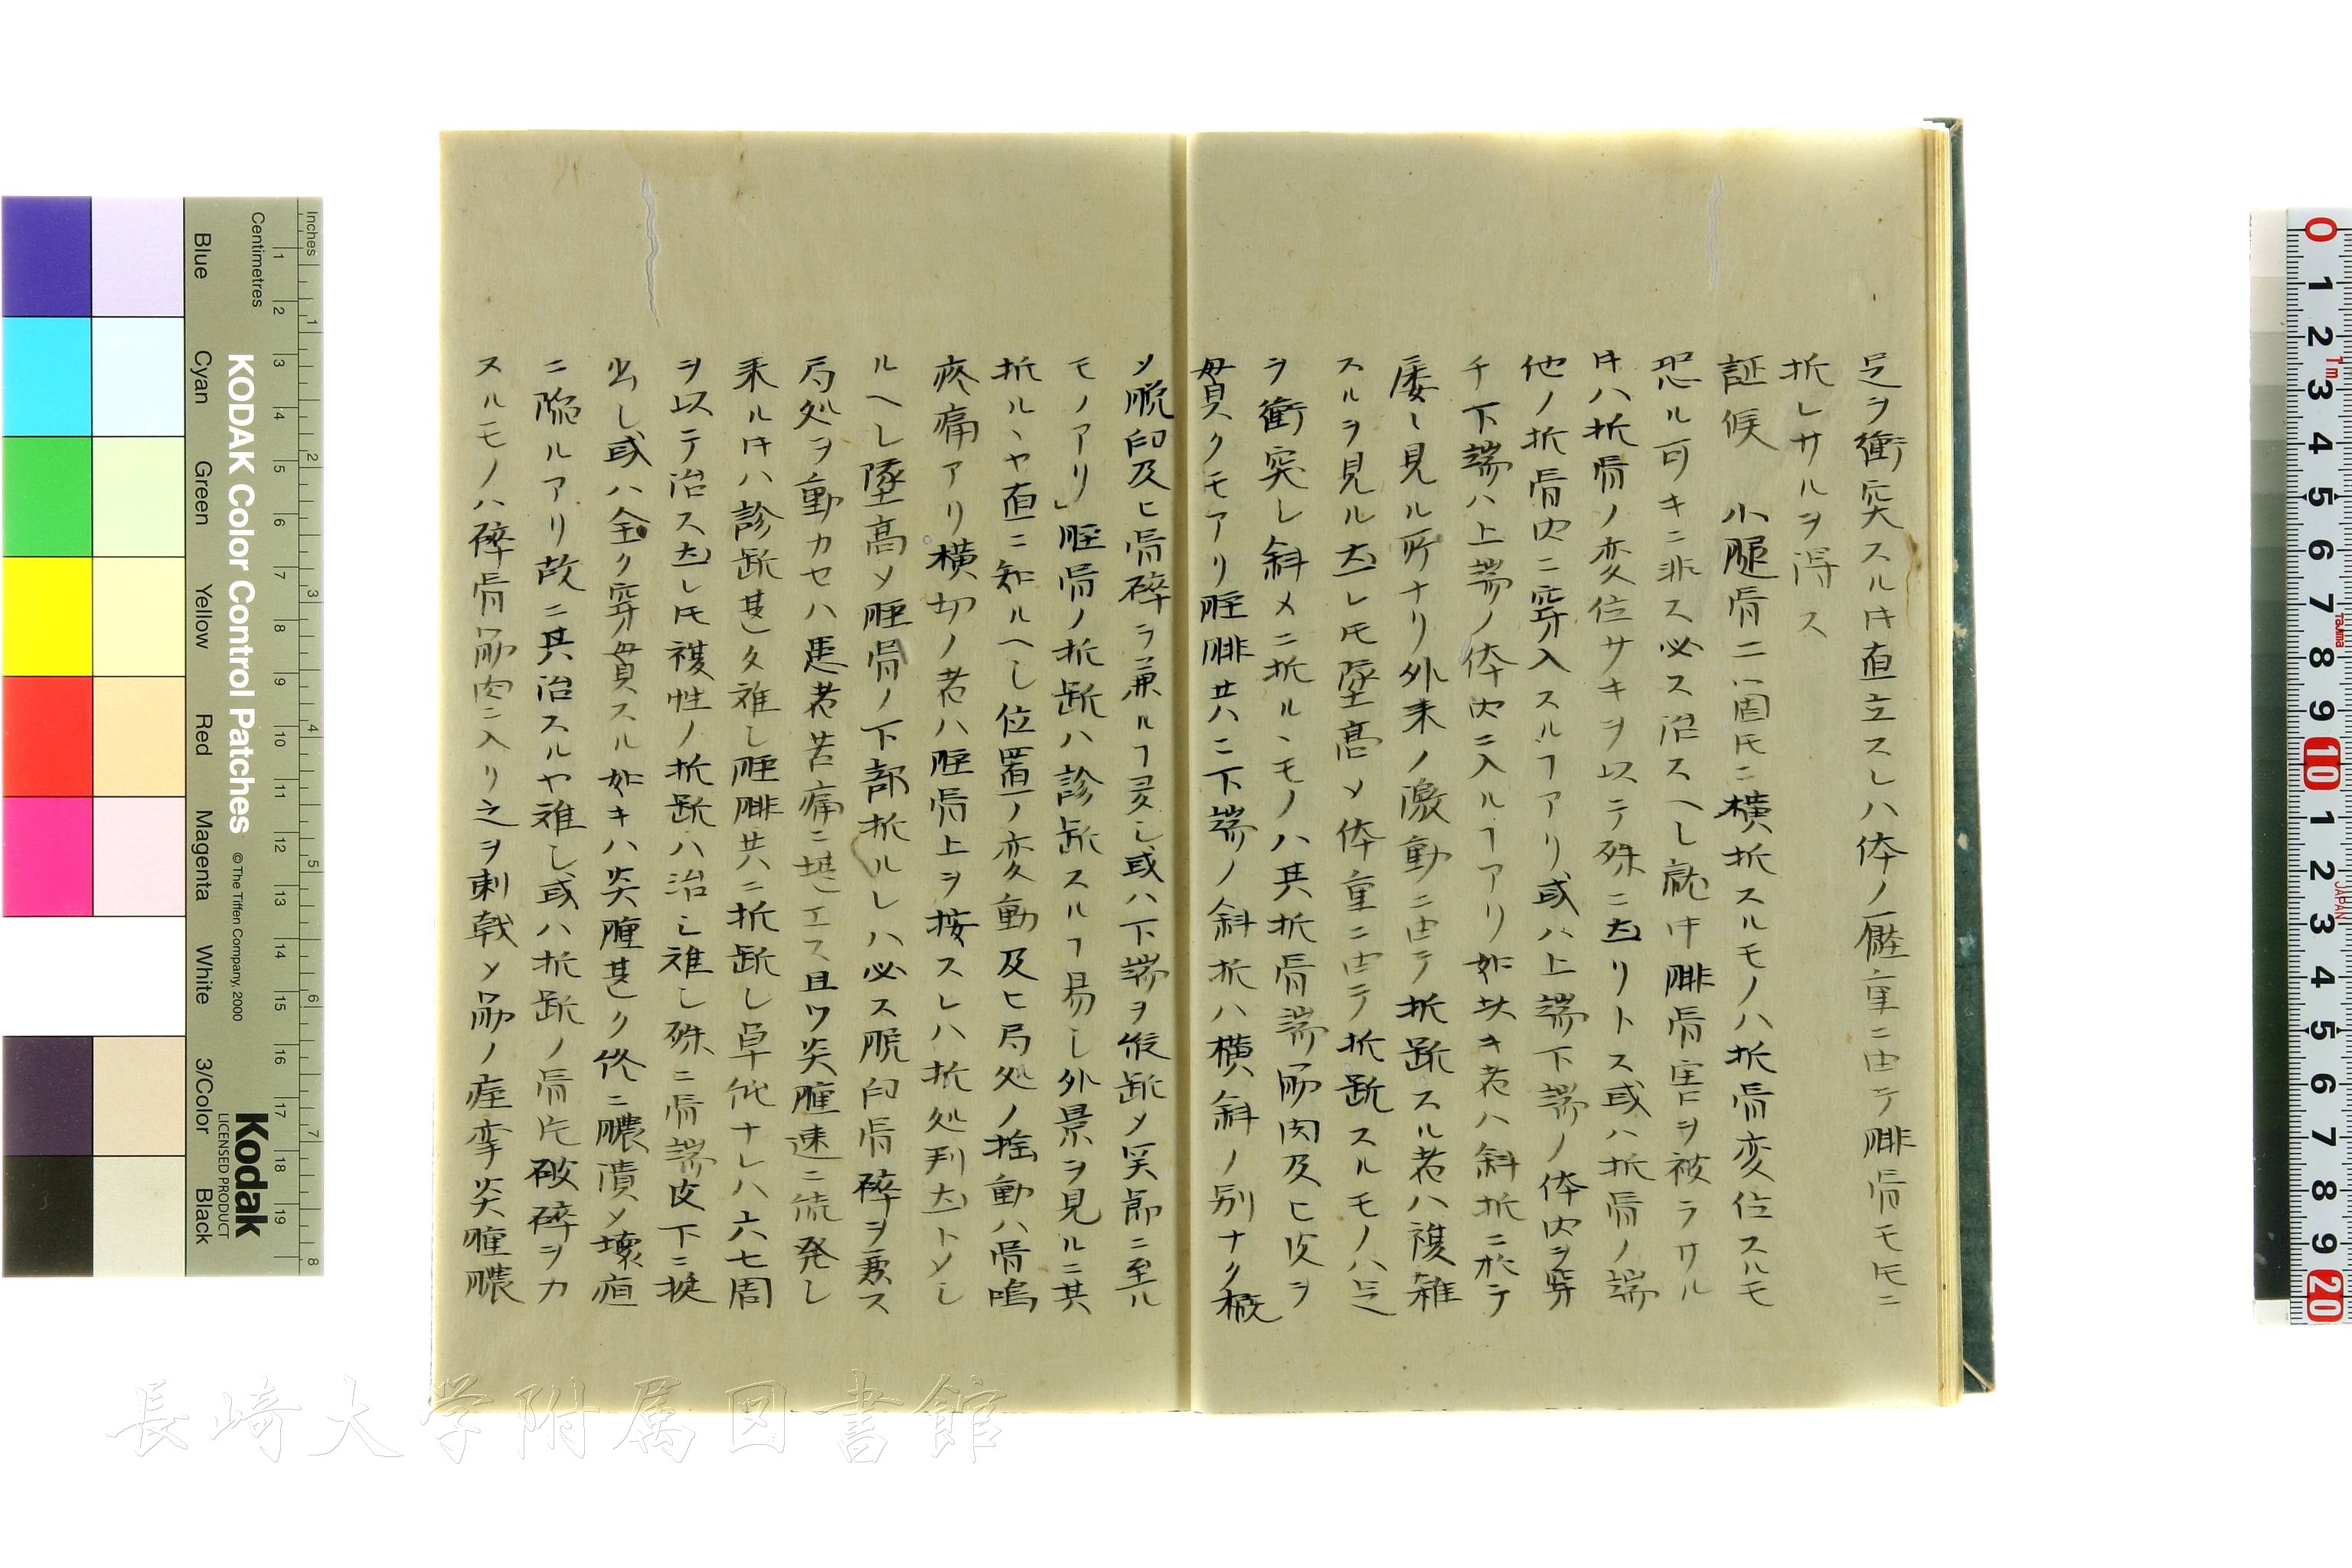 足ヲ衝突スルキ直立スレハ体ノ壓重ニ由テ腓骨モ𪜈ニ
折レサルヲ得ス
証候 小腿骨二箇𪜈ニ横折スルモノハ折骨変位スルモ
恐ル可キニ非ス必ス治スヘし就中腓骨害ヲ被ラサル
キハ折骨ノ変位サキヲ以テ殊ニ然リトス或ハ折骨ノ端
他ノ折骨内ニ穿入スルヿアリ或ハ上端下端ノ体内ヲ穿
チ下端ハ上端ノ体内ニ入ルヿアリ如此キ者ハ斜折ニ於テ
屡〻見ル所ナリ外来ノ激動ニ由テ折断スル者ハ複雑
スルヲ見ル然レ𪜈墜高メ体重ニ由テ折断スルモノハ足
ヲ衝突し斜メニ折ルヽモノハ其折骨端筋肉及ヒ皮ヲ
貫クモアリ脛腓共ニ下端ノ斜折ハ横斜ノ別ナク概
メ脱臼及ヒ骨碎ヲ兼ルヿ多し或ハ下端ヲ假断メ関節ニ至ル
モノアリ」脛骨ノ折断ハ診断スルヿ易し外景ヲ見ルニ其
折ルヽヤ直ニ知ルヘし位置ノ変動及ヒ局処ノ揺動ハ骨鳴
疼痛アリ横切ノ者ハ脛骨上ヲ按スレハ折処判然トメし
ルヘし墜高メ脛骨ノ下部折ルレハ必ス脱臼骨碎ヲ兼ス
局処ヲ動カセハ患者苦痛ニ堪エス且ツ炎腫速ニ続発し
来ルキハ診断甚タ難し脛腓共ニ折断し单純ナレハ六七周
ヲ以テ治ス然レ𪜈複性ノ折断ハ治し難し殊ニ骨端皮下ニ挺
出し或ハ全ク穿貫スル如キハ炎腫甚しク終ニ膿潰メ壊疽
ニ陥ルアリ故ニ其治スルヤ難し或ハ折断ノ骨片破碎ヲカ
スルモノハ碎骨筋肉ニ入リ之ヲ刺戟メ筋ノ痙攣炎腫膿
Blue
Cyan
Green
Yellow
Red
Magenta
White
3/Color
Black
Inches
Centimetres
KODAK Color Control Patches
© The Tiffen Company, 2000
Kodak
LICENSED PRODUCT
長崎大学附属図書館